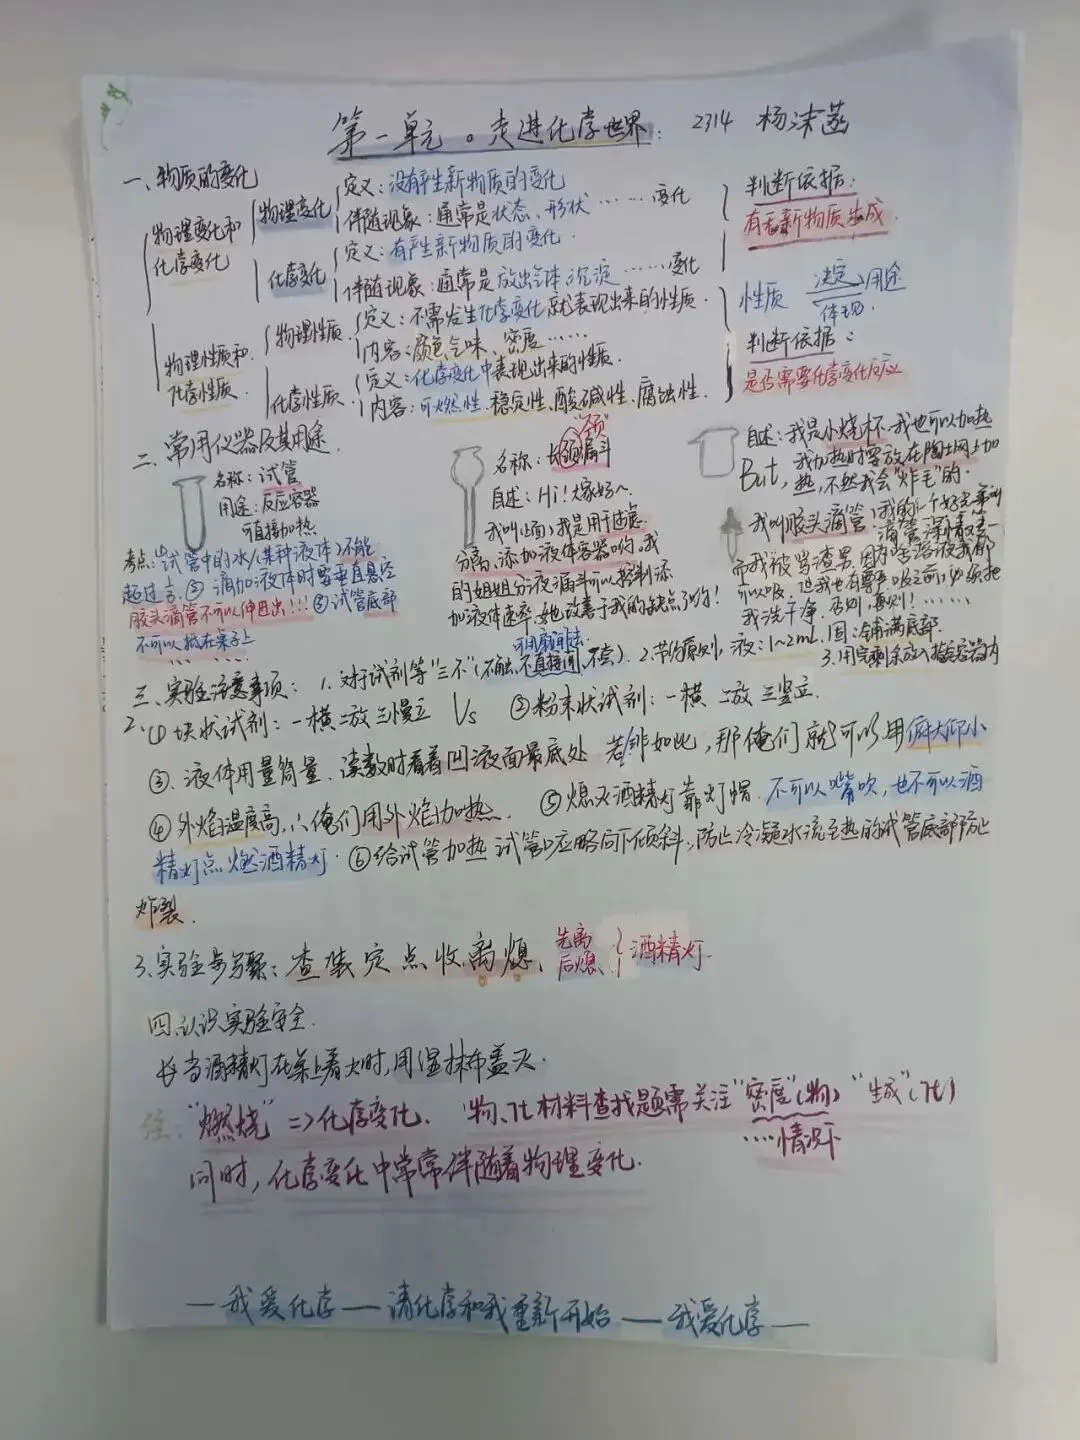 第一单元。走进化学世界: 2314 杨沫菡
一、物质的变化
物理变化和化学变化
物理变化
定义:没有产生新物质的变化
伴随现象:通常是状态、形状……变化
化学变化
定义:有产生新物质的变化.
伴随现象:通常是放出气体沉淀……变化
判断依据:
有无新物质生成.
物理性质和化学性质.
物理性质.
定义:不需发生化学变化就表现出来的性质.
内容:颜色气味、密度……
化学性质.
定义:化学变化中表现出来的性质.
内容:可燃性、稳定性、酸碱性、腐蚀性.
性质 决定 用途
体现.
判断依据:
是否需要化学变化反应
二、常用仪器及其用途.
名称:试管
用途:反应容器
可直接加热.
考点:①试管中的水(某种液体)不能
超过⅓.②滴加液体时要垂直悬空
胶头滴管不可以伸进出!!!③试管底部
不可以抵在桌子上
……
"颈"
名称:长颈漏斗
自述:Hi!大家好~
我叫(上面),我是用于过滤.
分离、添加液体容器哟,我
的姐姐分液漏斗可以控制添
加液体速率,她改善了我的缺点了哟!
自述:我是小烧杯.我也可以加热
But,我加热时要放在陶土网上加
热,不然我会"炸毛"的.
我叫胶头滴管,我的一个好兄弟叫
滴管
而我被骂渣男,因为
可以吸.但我也有尊严,吸之前,必须把
我洗干净.否则,哼则!……
可用扇闻法.
三、实验注意事项: 1.对于试剂等"三不"(不触,不直接闻,不尝). 2.节约原则,液:1~2mL.固:铺满底部.
3.用完剩余放入指定容器内
2.①块状试剂:一横二放三慢立 Vs ②粉末状试剂:一横二放三竖立.
③.液体用量筒量.读数时看着凹液面最底处 若非如此,那俺们就可以用俯大仰小
④外焰温度高,∴俺们用外焰加热. ⑤熄灭酒精灯靠灯帽.不可以嘴吹,也不可以酒
精灯点燃酒精灯.⑥给试管加热 试管口应略向下倾斜,防止冷凝水流至热的试管底部防止
炸裂.
3.实验步骤:查装定点收离熄、先离后熄、}酒精灯.
四.认识实验安全.
当酒精灯在桌上着火时,用湿抹布盖灭.
注:"燃烧"=>化学变化. 物、化材料查找题需关注"密度"(物) "生成"(化)
……情况下
同时,化学变化中常常伴随着物理变化.
—我爱化学—请化学和我重新开始—我爱化学—